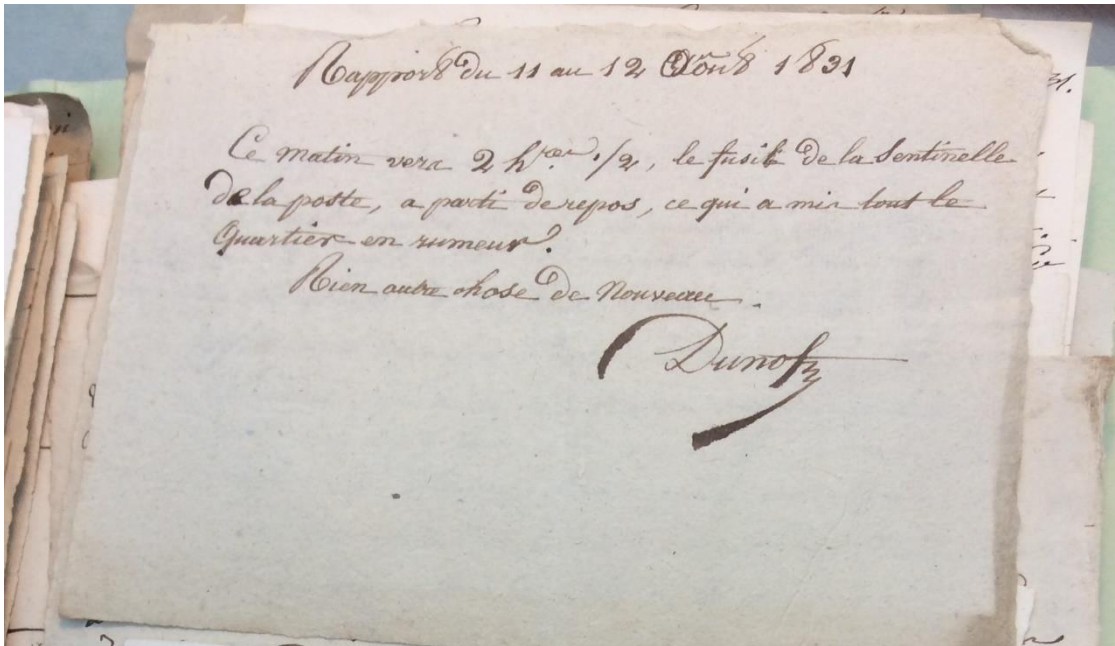 Rapport du 11 au 12 Août 1831
Ce matin vers 2 h.res 1/2, le fusil de la Sentinelle
de la poste, a parti de repos, ce qui a mis tout le
Quartier en rumeur.
Rien autre chose de Nouveau.